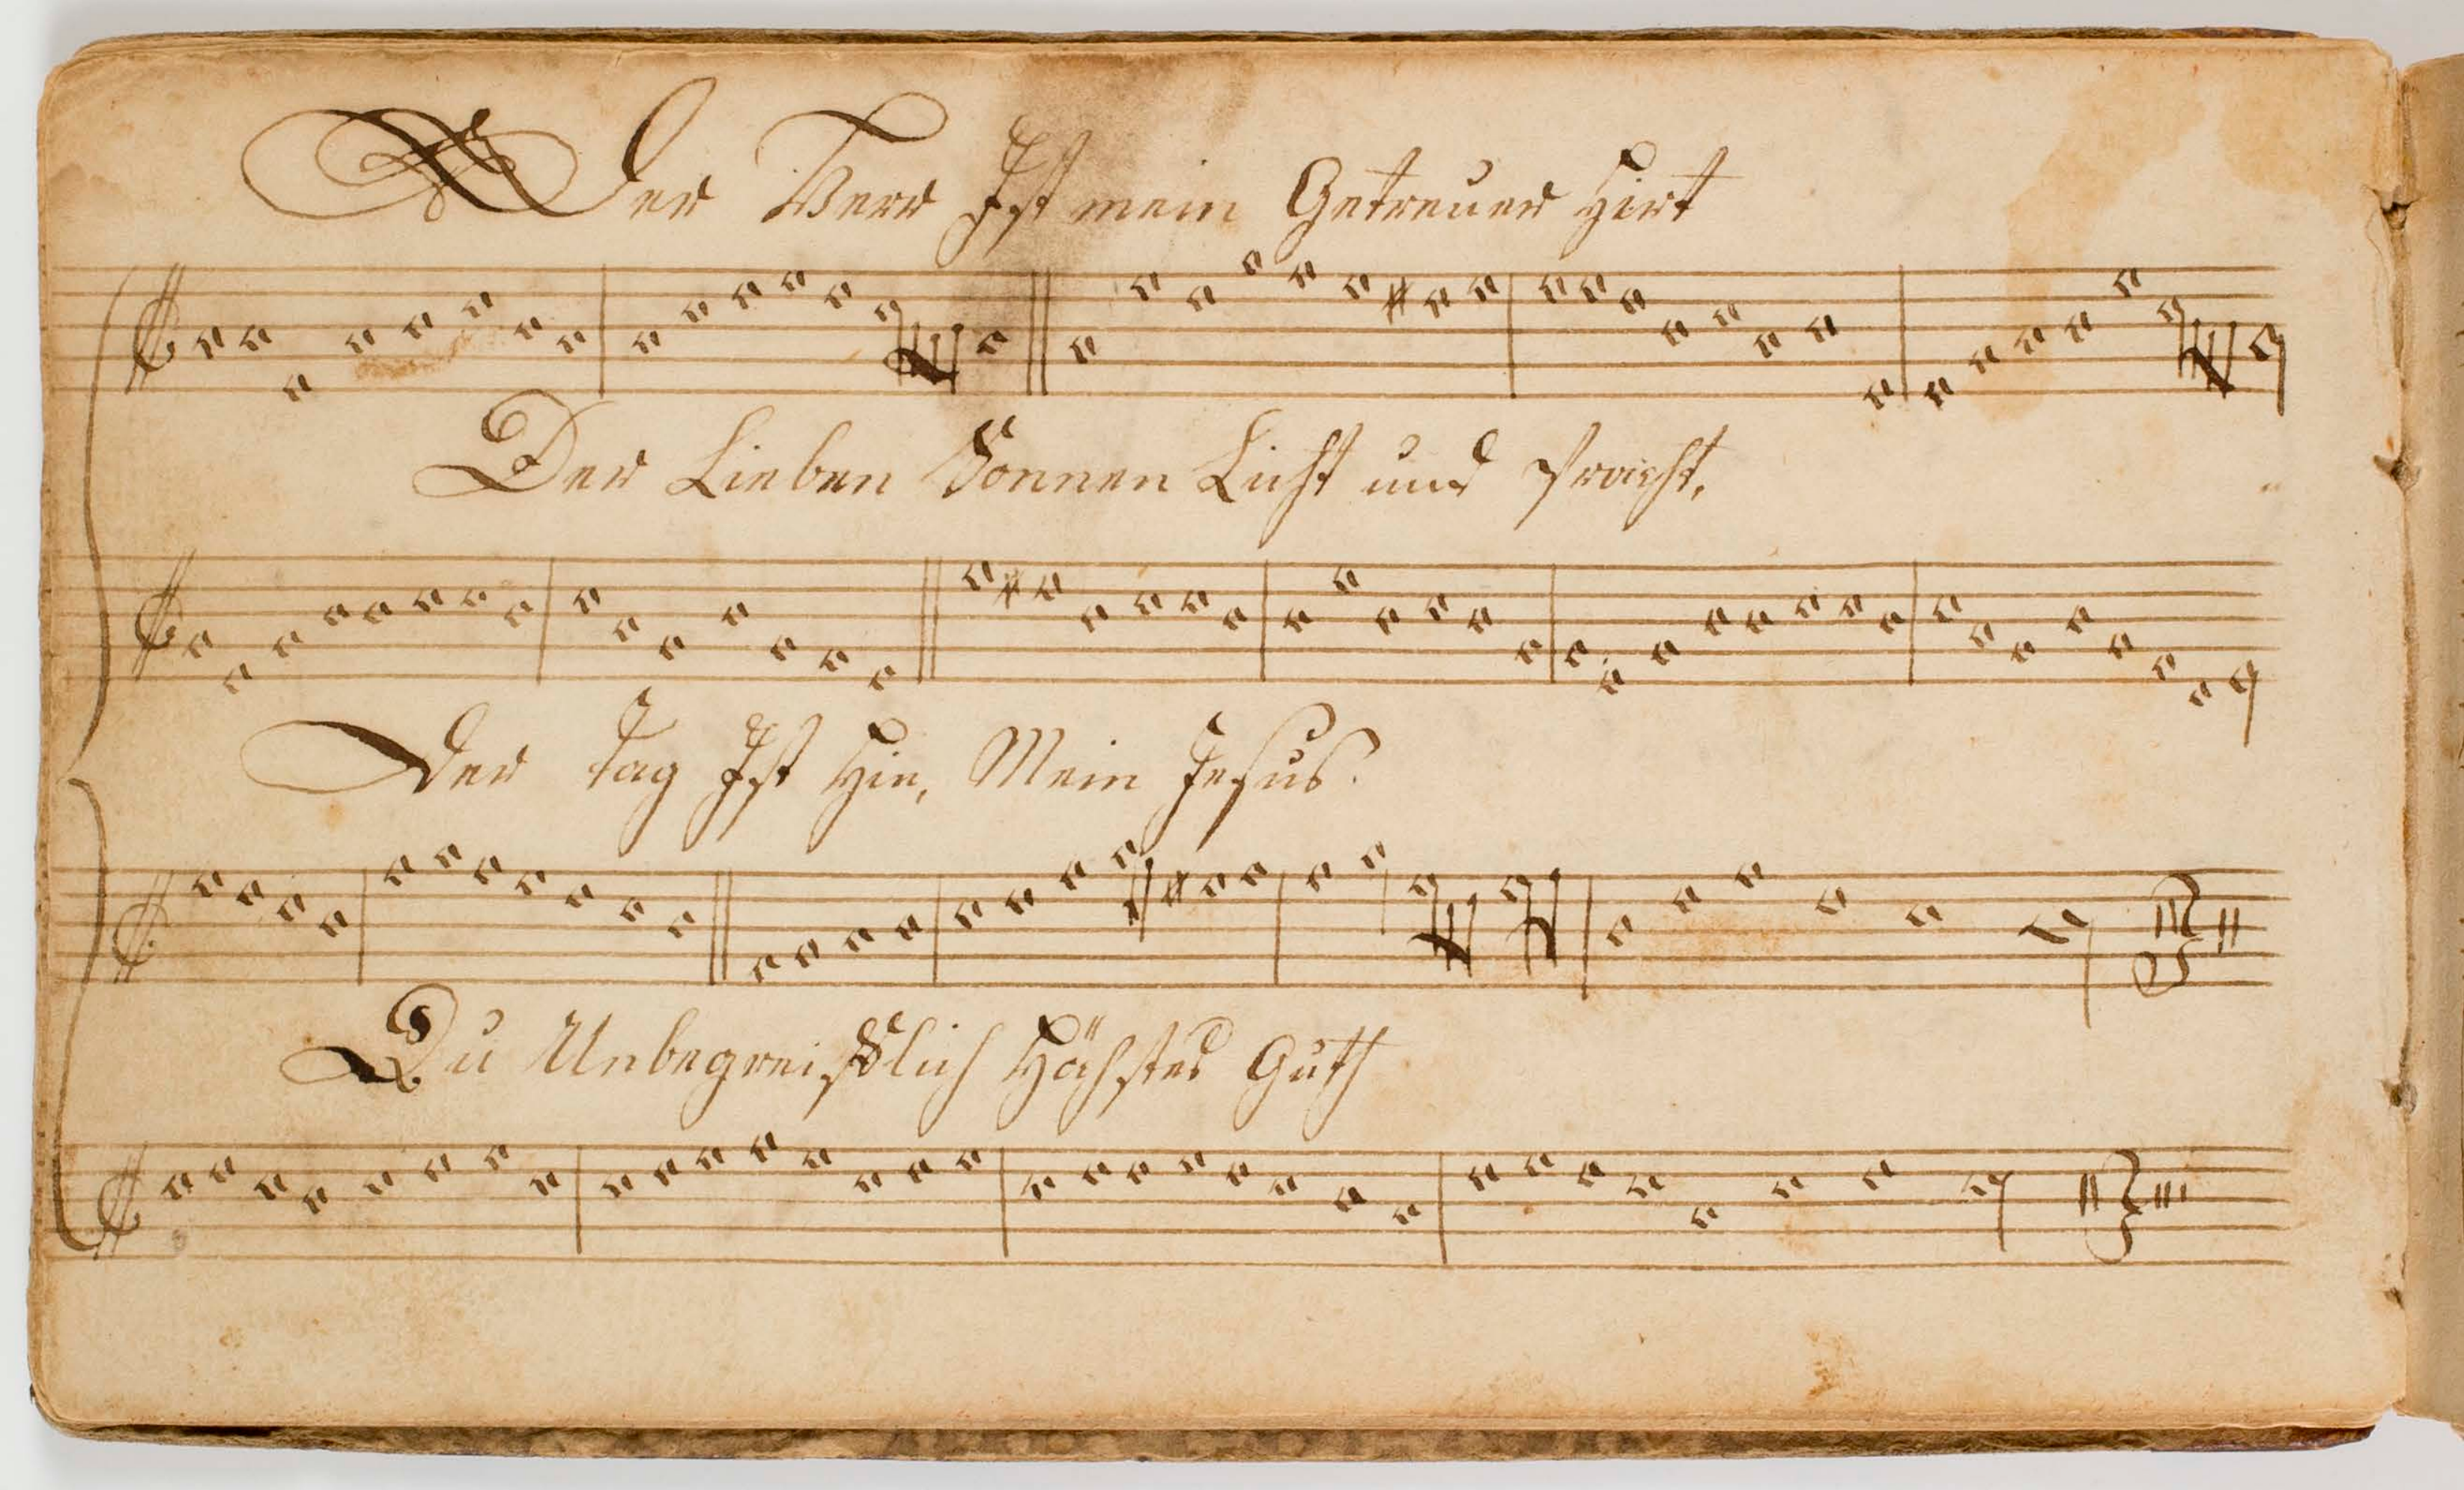 Der Herr Ist mein Getreuer Hirt
Der Lieben Sonnen Licht und Pracht,
Der Tag Ist Hin, Mein Jesus.
Du Unbegreifflich Höchstes Guth